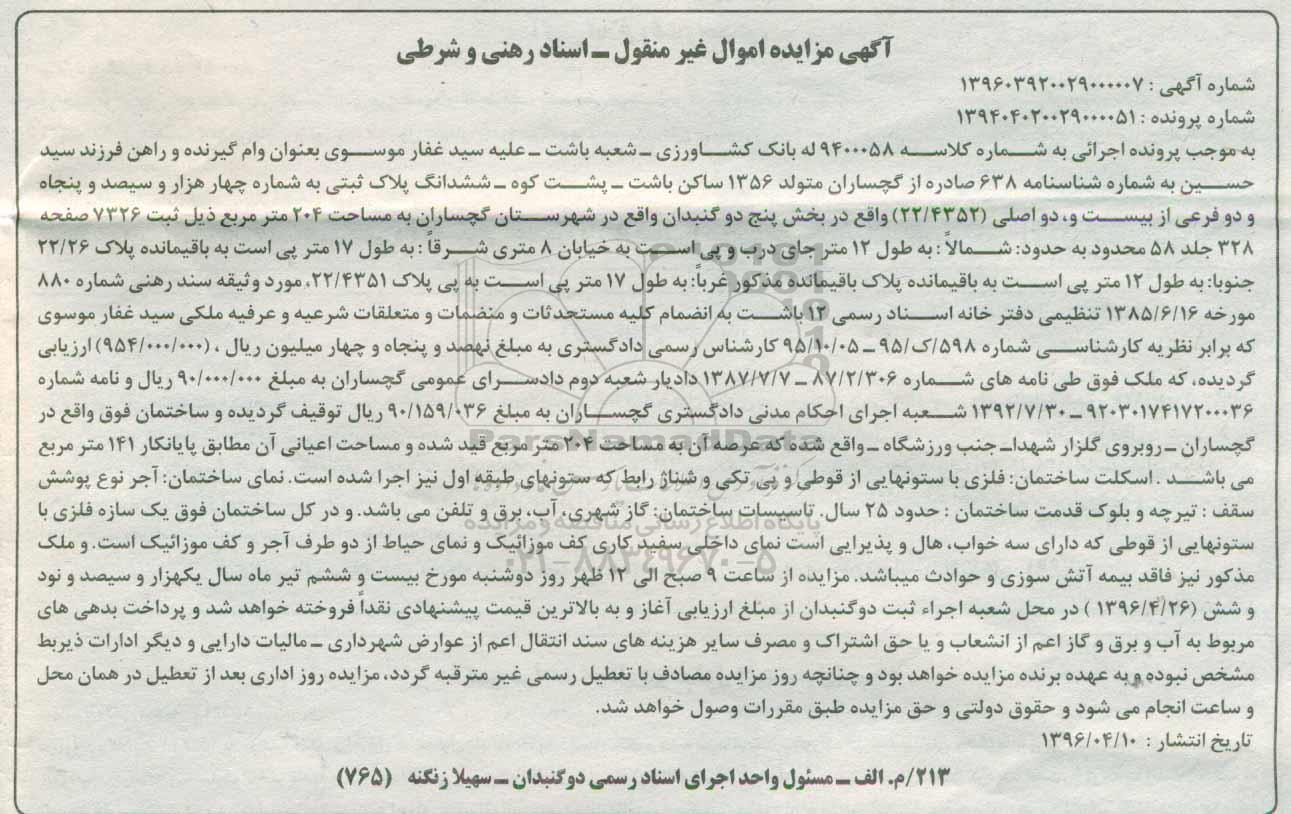 آگهی مزایده اموال غیر منقول ـ اسناد رهنی و شرطی
شماره آگهی : ۱۳۹۶۰۳۹۲۰۰۲۹۰۰۰۰۰۷
شماره پرونده : ۱۳۹۴۰۴۰۲۰۰۲۹۰۰۰۰۵۱
به موجب پرونده اجرائی به شماره کلاسه ۹۴۰۰۰۵۸ له بانک کشاورزی ـ شعبه باشت ـ علیه سید غفار موسوی بعنوان وام گیرنده و راهن فرزند سید
حسین به شماره شناسنامه ۶۳۸ صادره از گچساران متولد ۱۳۵۶ ساکن باشت ـ پشت کوه ـ ششدانگ پلاک ثبتی به شماره چهار هزار و سیصد و پنجاه
و دو فرعی از بیست و، دو اصلی (۲۲/۴۳۵۲) واقع در بخش پنج دو گنبدان واقع در شهرستان گچساران به مساحت ۲۰۴ متر مربع ذیل ثبت ۷۳۲۶ صفحه
۳۲۸ جلد ۵۸ محدود به حدود: شمالاً : به طول ۱۲ متر جای درب و پی است به خیابان ۸ متری شرقاً : به طول ۱۷ متر پی است به باقیمانده پلاک ۲۲/۲۶
جنوبا: به طول ۱۲ متر پی است به باقیمانده پلاک باقیمانده مذکور غرباً: به طول ۱۷ متر پی است به پی پلاک ۲۲/۴۳۵۱، مورد وثیقه سند رهنی شماره ۸۸۰
مورخه ۱۳۸۵/۶/۱۶ تنظیمی دفتر خانه اسناد رسمی ۱۲ باشت به انضمام کلیه مستحدثات و منضمات و متعلقات شرعیه و عرفیه ملکی سید غفار موسوی
که برابر نظریه کارشناسی شماره ۵۹۸/ک/۹۵ ـ ۹۵/۱۰/۰۵ کارشناس رسمی دادگستری به مبلغ نهصد و پنجاه و چهار میلیون ریال ، (۹۵۴/۰۰۰/۰۰۰) ارزیابی
گردیده، که ملک فوق طی نامه های شماره ۸۷/۲/۳۰۶ ـ ۱۳۸۷/۷/۷ دادیار شعبه دوم دادسرای عمومی گچساران به مبلغ ۹۰/۰۰۰/۰۰۰ ریال و نامه شماره
۹۲۰۳۰۱۷۴۱۷۲۰۰۰۳۶ ـ ۱۳۹۲/۷/۳۰ شعبه اجرای احکام مدنی دادگستری گچساران به مبلغ ۹۰/۱۵۹/۰۳۶ ریال توقیف گردیده و ساختمان فوق واقع در
گچساران ـ روبروی گلزار شهداـ جنب ورزشگاه ـ واقع شده که عرصه آن به مساحت ۲۰۴ متر مربع قید شده و مساحت اعیانی آن مطابق پایانکار ۱۴۱ متر مربع
می باشد . اسکلت ساختمان: فلزی با ستونهایی از قوطی و پی تکی و شناژ رابط که ستونهای طبقه اول نیز اجرا شده است. نمای ساختمان: آجر نوع پوشش
سقف : تیرچه و بلوک قدمت ساختمان : حدود ۲۵ سال. تاسیسات ساختمان: گاز شهری، آب، برق و تلفن می باشد. و در کل ساختمان فوق یک سازه فلزی با
ستونهایی از قوطی که دارای سه خواب، هال و پذیرایی است نمای داخلی سفید کاری کف موزائیک و نمای حیاط از دو طرف آجر و کف موزائیک است. و ملک
مذکور نیز فاقد بیمه آتش سوزی و حوادث میباشد. مزایده از ساعت ۹ صبح الی ۱۲ ظهر روز دوشنبه مورخ بیست و ششم تیر ماه سال یکهزار و سیصد و نود
و شش (۱۳۹۶/۴/۲۶ ) در محل شعبه اجراء ثبت دوگنبدان از مبلغ ارزیابی آغاز و به بالاترین قیمت پیشنهادی نقداً فروخته خواهد شد و پرداخت بدهی های
مربوط به آب و برق و گاز اعم از انشعاب و یا حق اشتراک و مصرف سایر هزینه های سند انتقال اعم از عوارض شهرداری ـ مالیات دارایی و دیگر ادارات ذیربط
مشخص نبوده و به عهده برنده مزایده خواهد بود و چنانچه روز مزایده مصادف با تعطیل رسمی غیر مترقبه گردد، مزایده روز اداری بعد از تعطیل در همان محل
و ساعت انجام می شود و حقوق دولتی و حق مزایده طبق مقررات وصول خواهد شد.
تاریخ انتشار : ۱۳۹۶/۰۴/۱۰
۲۱۳/م. الف ـ مسئول واحد اجرای اسناد رسمی دوگنبدان ـ سهیلا زنگنه (۷۶۵)
ParsNamadData
پایگاه اطلاع رسانی مناقصه و مزایده
۰۲۱-۸۸۳۴۹۶۷۰-۵